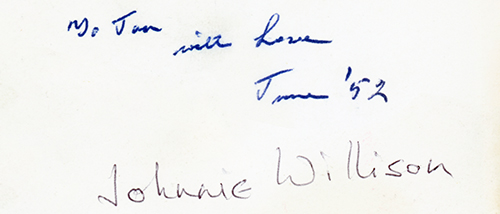 To Jan
with Love
June '52
Johnnie Willison